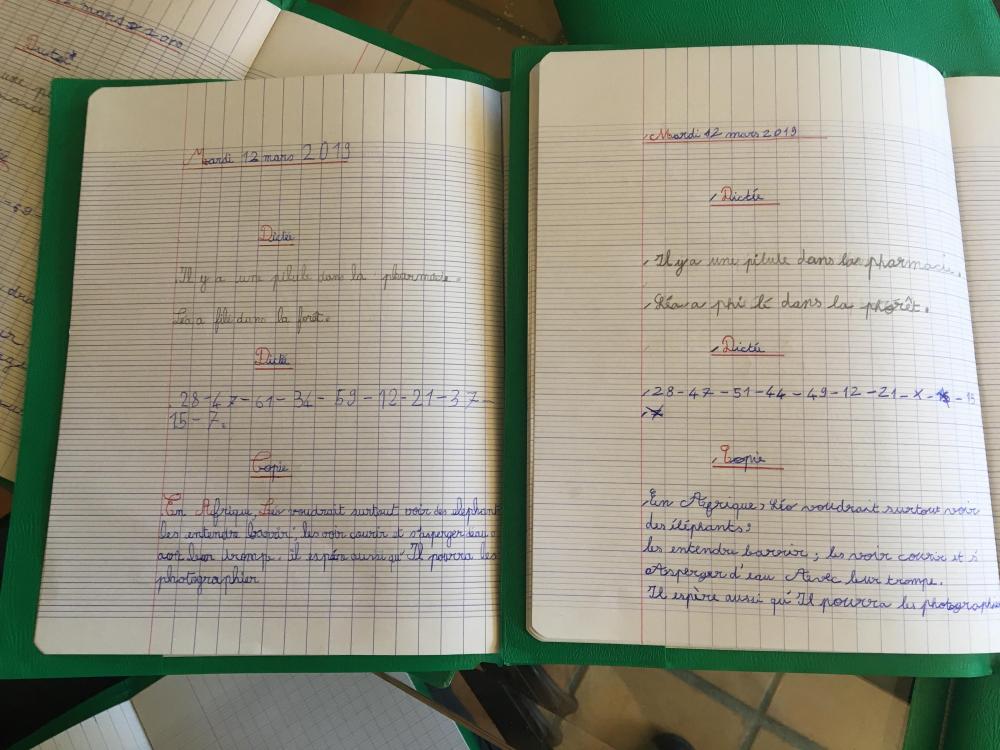 mars 2019
Dictée
Mardi 12 mars 2019
Dictée
Il y a une pilule dans la pharmacie.
Léa a filé dans la forêt.
Dictée
28-47-61-34-59-12-21-37-
15-7.
Copie
En Afrique, Léo voudrait surtout voir des elephant
les entendre barrir, les voir courir et s'asperger d'eau
leur tromp. il espére aussi qu'Il pourra les
photographier
Mardi 12 mars 2019
Dictée
Il y a une pilule dans la pharmacie.
Léa a phi lé dans la phorêt.
Dictée
28-47-51-44-49-12-21-X- -15
Copie
En Afrique, Léo voudrait surtout voir
des éléphants,
les entendre barrir ; les voir courir et s'
Asperger d'eau Avec leur trompe.
Il espère aussi qu'Il pourra les photographie